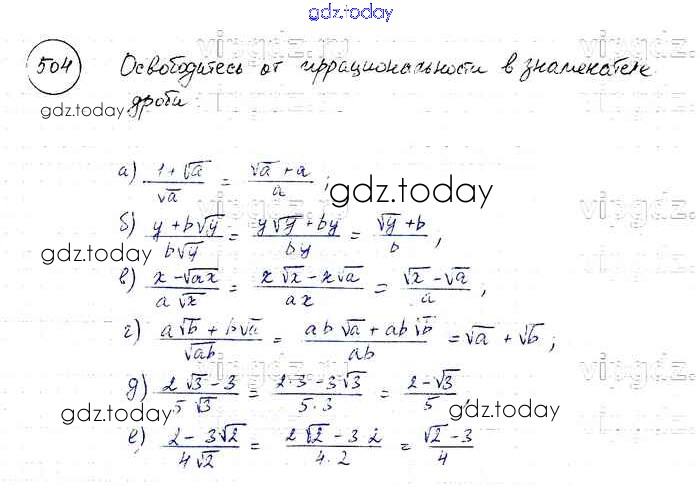 gdz.today
504 Освободитесь от иррациональности в знаменателе
дроби
gdz.today
а) (1+√a)/√a = (√a+a)/a ;
gdz.today
б) (y+b√y)/(b√y) = (y√y+by)/(by) = (√y+b)/b ,
gdz.today
в) (x-√ax)/(a√x) = (x√x-x√a)/(ax) = (√x-√a)/a ;
г) (a√b+b√a)/√ab = (ab√a+ab√b)/(ab) = √a+√b ;
д) (2√3-3)/(5√3) = (2·3-3√3)/(5·3) = (2-√3)/5 ,
gdz.today
gdz.today
е) (2-3√2)/(4√2) = (2√2-3·2)/(4·2) = (√2-3)/4